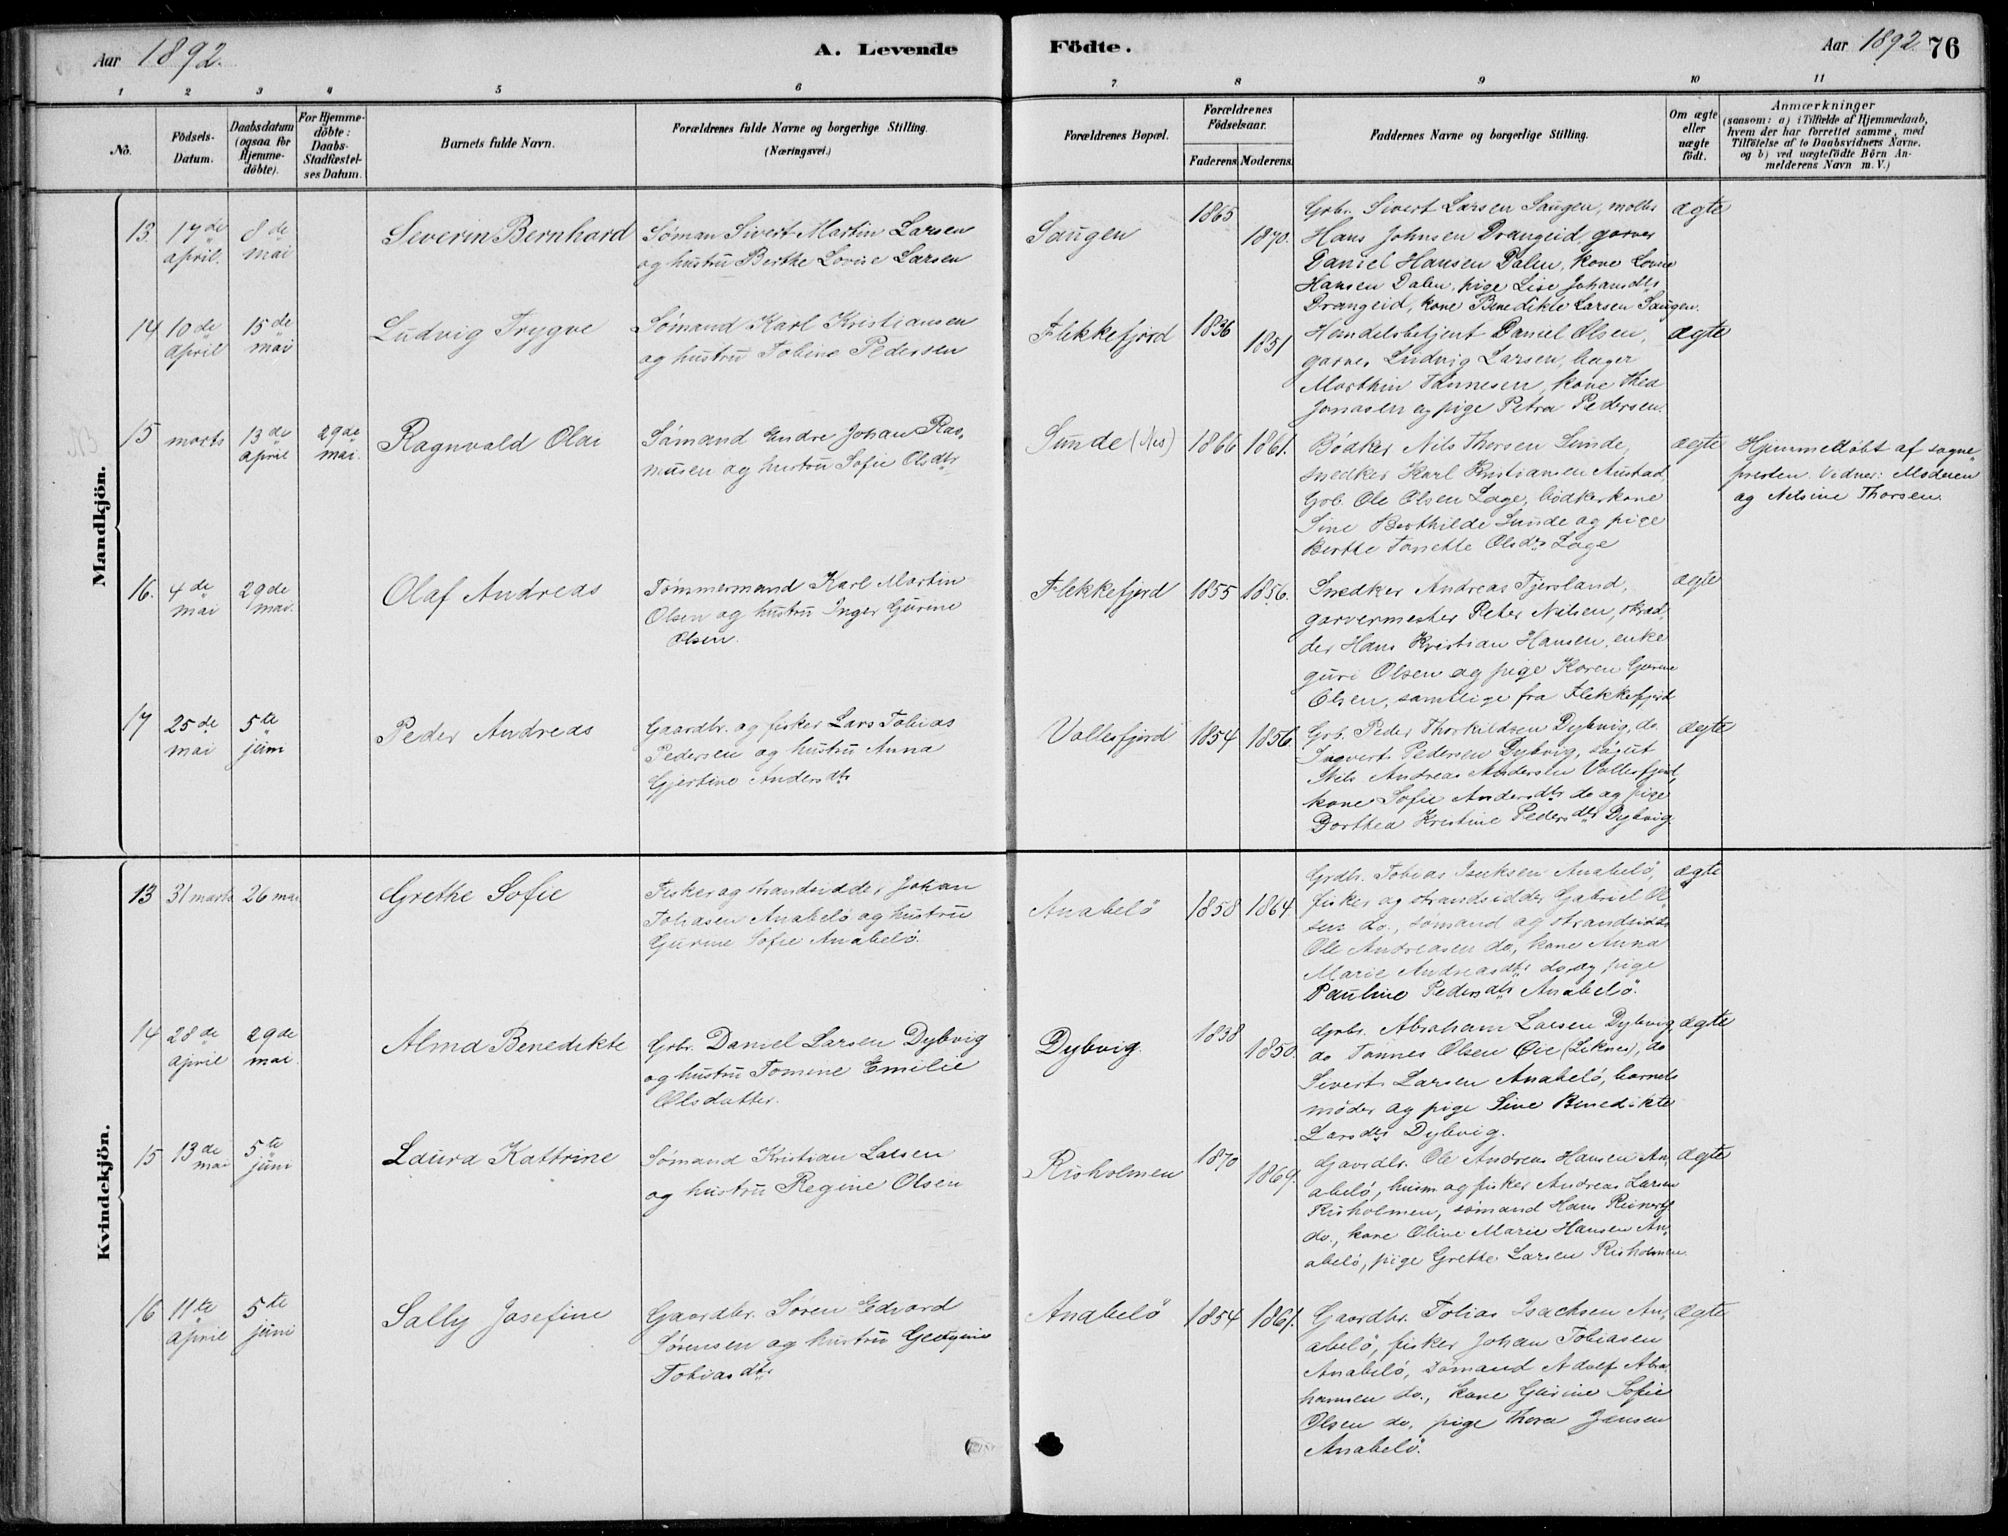 Aar 1892.
A. Levende
Födte.
Aar 1892
76
1 2 3 4 5 6 7 8 9 10 11
No.
Födsels-Datum.
Daabsdatum (ogsaa for Hjemme-döbte).
For Hjemme-döbte: Daabs-Stadfæstel-ses Datum.
Barnets fulde Navn.
Forældrenes fulde Navne og borgerlige Stilling.
(Næringsvei.)
Forældrenes Bopæl.
Forældrenes Födselsaar.
Faderens. Moderens.
Faddernes Navne og borgerlige Stilling.
Om ægte eller uægte födt.
Anmærkninger
(saasom: a) i Tilfælde af Hjemmedaab,
hvem der har forrettet samme, med
Tilföielse af to Daabsvidners Navne,
og b) ved uægtefödte Börn An-
melderens Navn m. V.)
Mandkjön.
13. 17de april. 8de mai
Severin Bernhard
Söman Sivert Martin Larsen
og hustru Berthe Lovise Larsen
Saugen
1865 1870.
Gbr. Sivert Larsen Saugen, møller
Hans Johnsen Drangeid, garver
Daniel Hansen Dalen, kone Lovise
Hansen Dalen, pige Lise Johansdtr
Drangeid, kone Benedikte Larsen Saugen.
ægte
14 10de april 15de mai
Ludvig Trygve
Sömand Karl Kristiansen
og hustru Tobine Pedersen
Flekkefjord
1836 1851
Handelsbetjent Daniel Olsen,
garver Ludvig Larsen, bager
Marthin Tønnesen, kone Thea
Jonasen og pige Petra Pedersen.
ægte
15 marts 13de april 29de mai.
Ragnvald Olai
Sömand Endre Johan Ras-
musen og hustru Sofie Olsdtr
Sunde (Nes)
1866 1861.
Bødker Nils Thorsen Sunde,
snedker Karl Kristiansen Austad,
Gbr. Ole Olsen Lage, bødkerkone
Sine Berthilde Sunde og pige
Berthe Tonette Olsdtr Lage
ægte
Hjemmedøbt af sogne-
presten. Vidner: Moderen
og Nelsine Thorsen.
16. 4de mai 29de mai.
Olaf Andreas
Tømmermand Karl Martin
Olsen og hustru Inger Gurine
Olsen.
Flekkefjord
1855 1856.
Snedker Andreas Tjersland,
garvermester Peter Nilsen, skræd-
der Hans Kristian Hansen, enke
Guri Olsen og pige Karen Gurine
Olsen, samtlige fra Flekkefjord
ægte
17 25de mai 5te juni
Peder Andreas
Gaardbr. og fisker Lars Tobias
Pedersen og hustru Anna
Gjertine Andersdtr
Vollesfjord
1854 1856.
Gbr. Peder Thorkildsen Dybvig, do.
Ingvert Pedersen Dybvig, søgut
Nils Andreas Andersen Vollesfjord,
kone Sofie Andersdtr do og pige
Dorthea Kristine Pedersdtr Dybvig.
ægte
Kvindekjön.
13 31 marts 26 mai
Grethe Sofie
Fisker og strandsidder Johan
Tobiasen Anabelö og hustru
Gurine Sofie Anabelö.
Anabelö
1858 1864.
Grdbr. Tobias Isaksen Anabelö,
fisker og strandsidder Gabriel Ol-
sen do., sømand og strandsidder
Ole Andreasen do, kone Anna
Marie Andreasdtr do og pige
Pauline Pedersdtr Anabelö.
ægte
14 28de april 29de mai.
Alma Benedikte
Gbr. Daniel Larsen Dybvig
og hustru Tomine Emilie
Olsdatter.
Dybvig.
1838 1850.
Grbr. Abraham Larsen Dybvig,
do Tønnes Olsen Øie (Liknes), do
Sivert Larsen Anabelö, barnets
moder og pige Sine Benedikte
Larsdtr Dybvig.
ægte
15 13de mai 5te juni
Laura Kattrine
Sömand Kristian Larsen
og hustru Regine Olsen
Risholmen
1870 1869.
Gaardbr. Ole Andreas Hansen An-
abelö, husm. og fisker Andreas Larsen
Risholmen, sømand Hans
do., kone Oline Marie Hansen An-
abelö, pige Grethe Larsen Risholmen.
ægte
16 11te april 5te juni
Sally Josefine
Gaardbr. Sören Edvard
Sörensen og hustru Georgine
Tobiasdtr
Anabelö
1854 1861.
Gaardbr. Tobias Isachsen An-
abelö, fisker Johan Tobiasen
Anabelö, Sømand Adolf Abra-
hamsen do., kone Gurine Sofie
Olsen do, pige Thora Jensen
Anabelö.
ægte